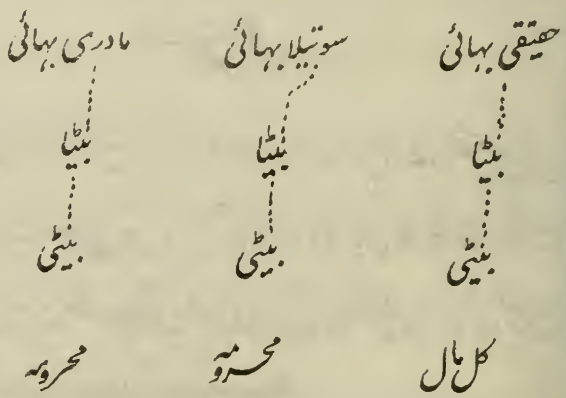 حقیقی بہائی سوتیلا بہائی مادری بہائی
بیٹا بیٹا بیٹا
بیٹی بیٹی بیٹی
کل مال محرومہ محرومہ